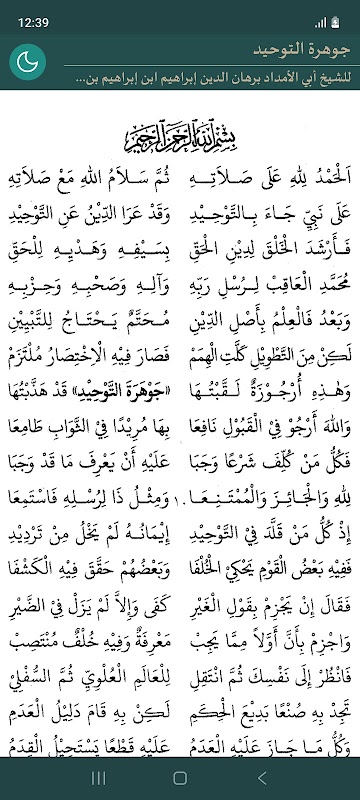 12:39
جوهرة التوحيد
للشيخ أبي الأمداد برهان الدين إبراهيم ابن إبراهيم بن...
بِسْمِ اللَّهِ الرَّحْمَنِ الرَّحِيمِ
اَلْحَمْدُ لِلهِ عَلَى صَلَاتِهِ ثُمَّ سَلَامُ اللهِ مَعْ صَلَاتِهِ
عَلَى نَبِيٍّ جَاءَ بِالتَّوْحِيدِ وَقَدْ عَرَا الدِّيْنُ عَنِ التَّوْحِيْدِ
فَأَرْشَدَ الْخَلْقَ لِدِيْنِ الْحَقِّ بِسَيْفِهِ وَهَدْيِهِ لِلْحَقِّ
مُحَمَّدِ الْعَاقِبْ لِرُسْلِ رَبِّهِ وَآلِهِ وَصَحْبِهِ وَحِزْبِهِ
وَبَعْدُ فَالْعِلْمُ بِأَصْلِ الدِّيْنِ مُحَتَّمٌ يَحْتَاجُ لِلتَّبْيِيْنِ
لَكِنْ مِنَ التَّطْوِيْلِ كَلَّتِ الْهِمَمْ فَصَارَ فِيْهِ الْاِخْتِصَارُ مُلْتَزَمْ
وَهَذِهِ أُرْجُوْزَةٌ لَقَّبْتُهَا «جَوْهَرَةَ التَّوْحِيْدِ» قَدْ هَذَّبْتُهَا
وَاللهَ أَرْجُوْ فِيْ الْقَبُوْلِ نَافِعَا بِهَا مُرِيْدًا فِيْ الثَّوَابِ طَامِعَا
فَكُلُّ مَنْ كُلِّفَ شَرْعًا وَجَبَا عَلَيْهِ أَنْ يَعْرِفَ مَا قَدْ وَجَبَا
لِلهِ وَالْجَائِزَ وَالْمُمْتَنِعَا ١٠ وَمِثْلُ ذَا لِرُسْلِهِ فَاسْتَمِعَا
إِذْ كُلُّ مَنْ قَلَّدَ فِيْ التَّوْحِيْدِ إِيْمَانُهُ لَمْ يَخْلُ مِنْ تَرْدِيْدِ
فَفِيْهِ بَعْضُ الْقَوْمِ يَحْكِيْ الْخُلْفَا وَبَعْضُهُمْ حَقَّقَ فِيْهِ الْكَشْفَا
فَقَالَ إِنْ يَجْزِمْ بِقَوْلِ الْغَيْرِ كَفَى وَإِلَّا لَمْ يَزَلْ فِيْ الضَّيْرِ
وَاجْزِمْ بِأَنَّ أَوَّلاً مِمَّا يَجِبْ مَعْرِفَةٌ وَفِيْهِ خُلْفٌ مُنْتَصِبْ
فَانْظُرْ إِلَى نَفْسِكَ ثُمَّ انْتَقِلِ لِلْعَالَمِ الْعُلْوِيِّ ثُمَّ السُّفْلِيْ
تَجِدْ بِهِ صُنْعًا بَدِيْعَ الْحِكَمِ لَكِنْ بِهِ قَامَ دَلِيْلُ الْعَدَمِ
وَكُلُّ مَا جَازَ عَلَيْهِ الْعَدَمُ عَلَيْهِ قَطْعًا يَسْتَحِيْلُ الْقِدَمُ